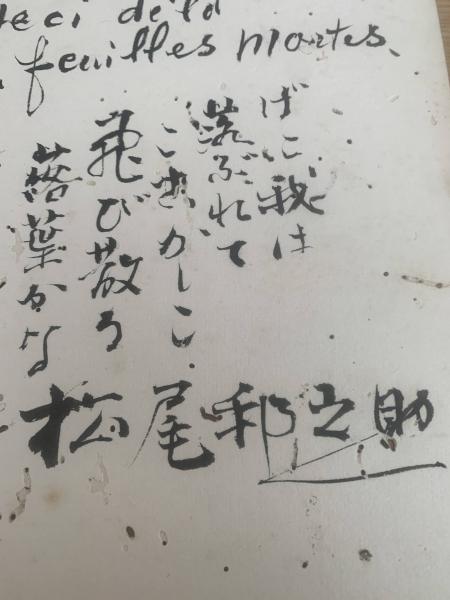 deci de là
feuilles mortes.
げに我は
落ぶれて
ここかしこ
飛び散る
落葉かな
松尾邦之助